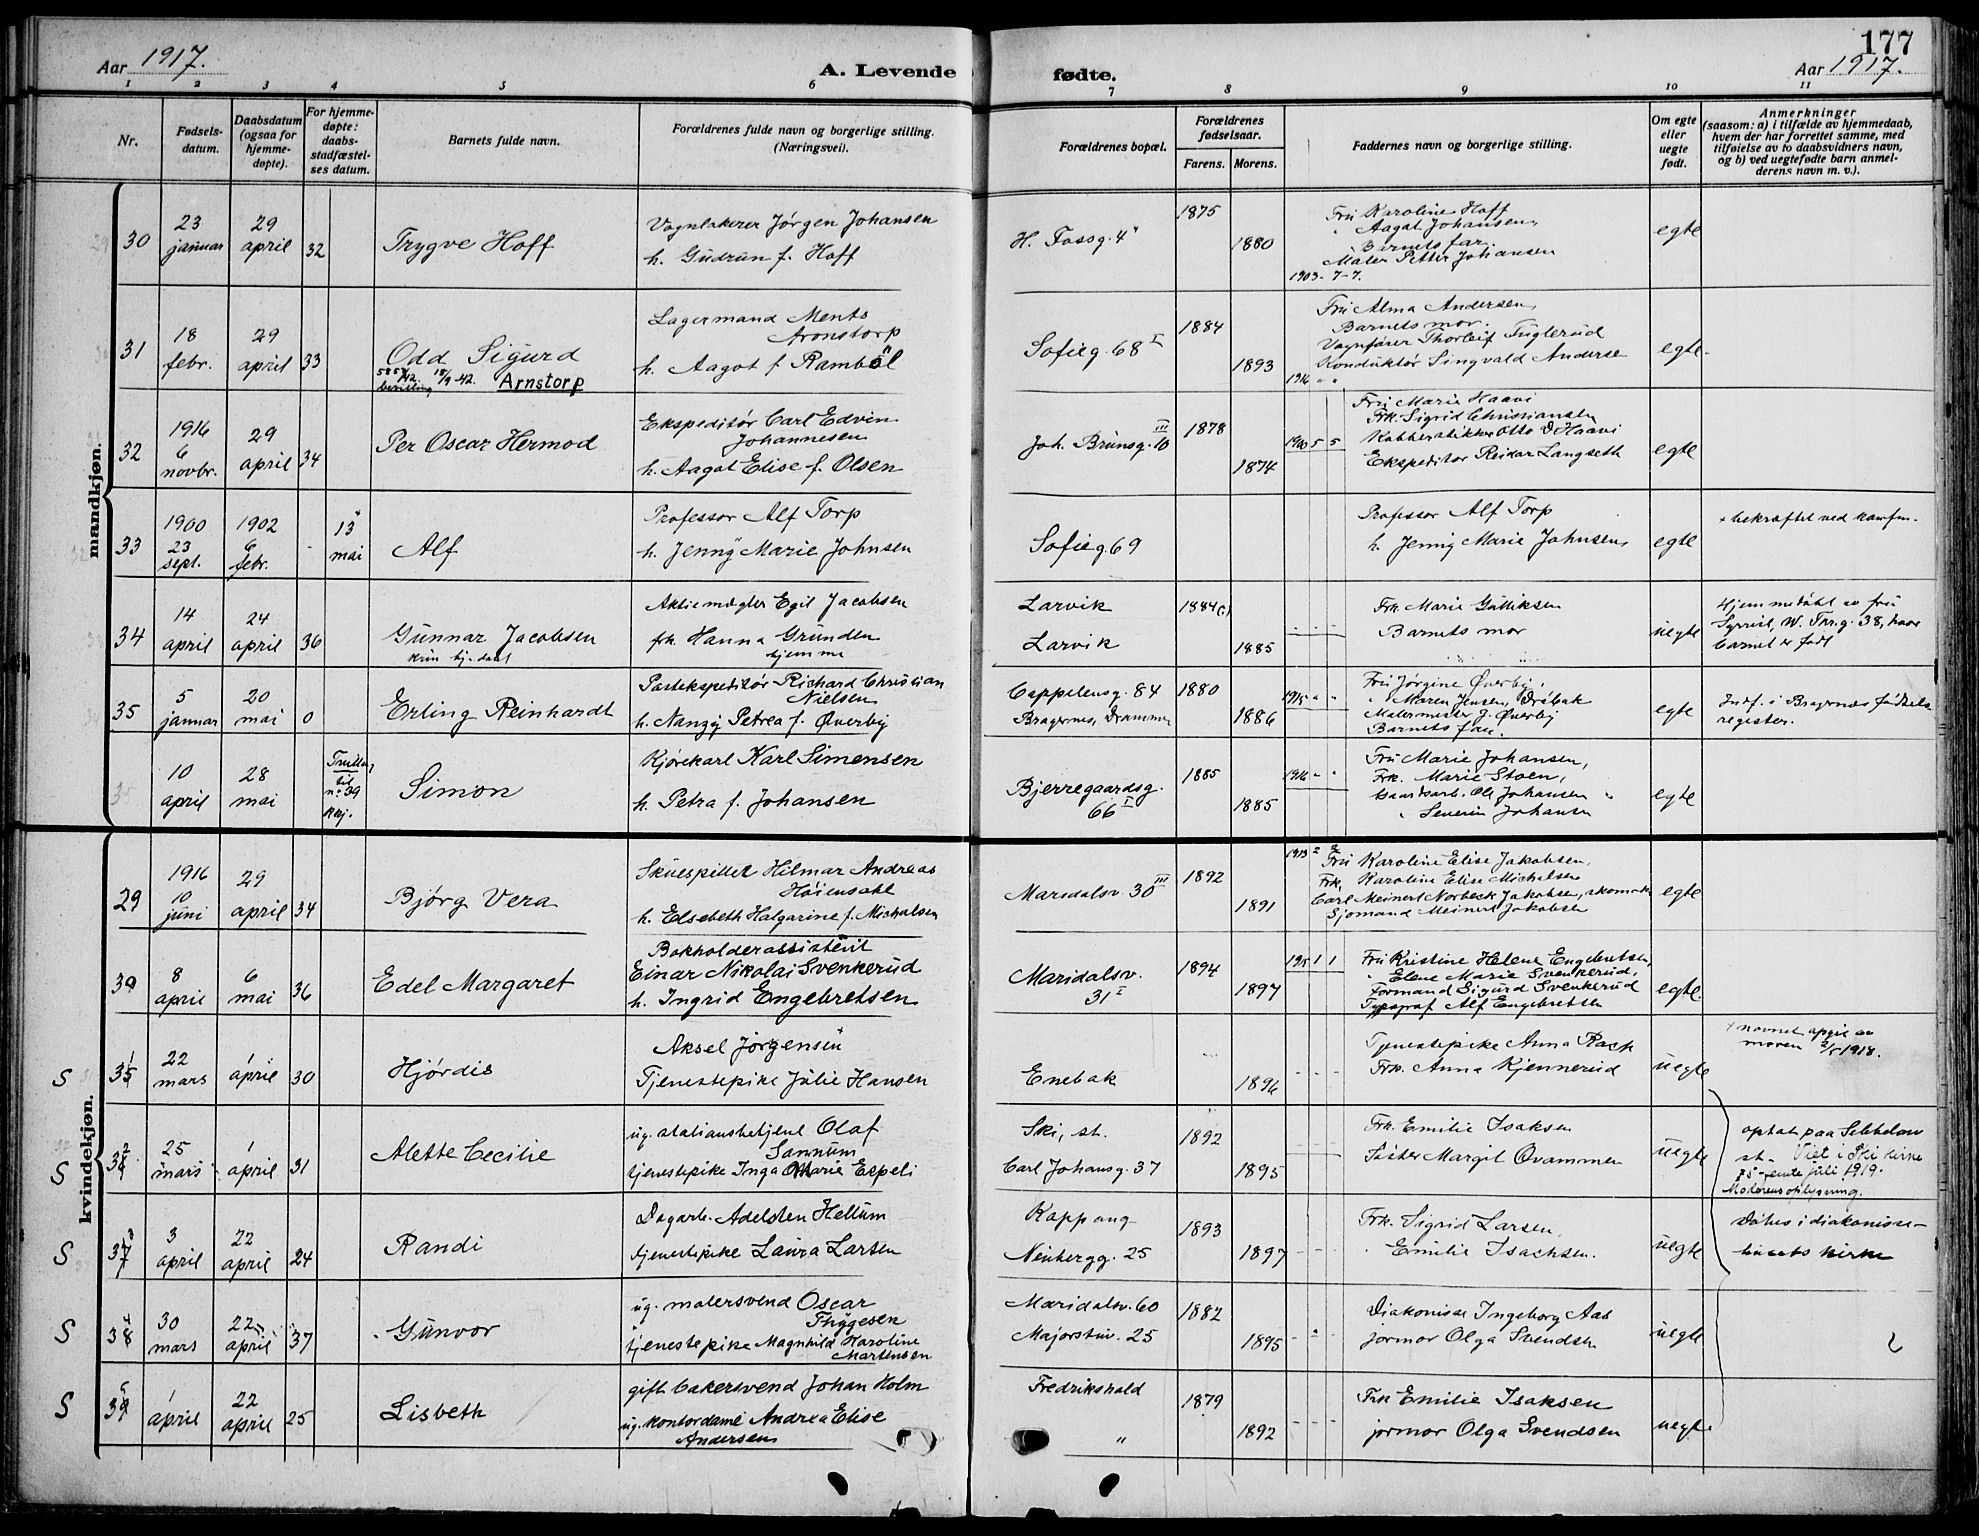 Aar 1917.
A. Levende fødte.
177
Aar 1917.
1 2 3 4 5 6 7 8 9 10 11
Nr.
Fødsels-
datum.
Daabsdatum
(ogsaa for
hjemme-
døpte).
For hjemme-
døpte:
daabs-
stadfæstel-
ses datum.
Barnets fulde navn.
Forældrenes fulde navn og borgerlige stilling.
(Næringsvei).
Forældrenes bopæl.
Forældrenes
fødselsaar.
Farens. Morens.
Faddernes navn og borgerlige stilling.
Om egte
eller
uegte
født.
Anmerkninger
(saasom: a) i tilfælde av hjemmedaab,
hvem der har forrettet samme, med
tilføielse av to daabsvidners navn,
og b) ved uegtefødte barn anmel-
derens navn m. v.).
mandkjøn.
30
23
januar
29
april
32
Trygve Hoff
Vognlakerer Jørgen Johansen
h. Gudrun f. Hoff
H. Fossg. 4"
1875
1880
Fru Karoline Hoff
" Aagot Johansen,
Barnets far.
Maler Petter Johansen
1903-7-7.
egte
31
18
febr.
29
april
33
Odd Sigurd
15/9-42. Arnstorp
Lagermand Ments
Aronstorp
h. Aagot f. Ramböl
Sofieg. 68 I
1884
1893
Fru Alma Andersen,
Barnets mor.
Vognfører Thorleif Fuglerud
Konduktør Singvald Anderse
1916 " "
egte.
32
1916
6
novbr.
29
april
34
Per Oscar Hermod
Ekspeditør Carl Edvin
Johannesen
h. Aagot Elise f. Olsen
Joh. Brunsg. 10 III
1878
1874
1900 5 5
Fru Marie Haavi
Frk. Sigrid Christiansen
Kobberstikker Otto D Haavi
Ekspeditør Reidar Langseth
egte
33
1900
23
sept.
1902
6
febr.
13
mai
Alf
Professor Alf Torp
h. Jenny Marie Johnsen
Sofieg 69
Professor Alf Torp
h. Jenny Marie Johnsen,
egte
+ bekræftet ved konfm.
34
14
april
24
april
36
Gunnar Jacobsen
kun hj. døbt
Aktiemægler Egil Jacobsen
frk. Hanna Grunden
hjemme
Larvik
Larvik
1884
1885
Frk. Marie Gulliksen
Barnets mor
uegte
Hjemmedøbt av fru
W. Thr.g. 38, hvor
barnet er født
35
5
januar
20
mai
0
Erling Reinhardt
Postekspeditør Richard Christian
Nielsen
h. Nanzy Petrea f. Øverby
Cappelensg. 84
Bragernes, Drammen
1880
1886
1915 " "
Fru Jørgine Øverby,
" Maren Jensen, Drøbak
Malermester J. Øverby
Barnets far.
egte
Indf. i Bragernes fødsels
register.
10
april
28
mai
Tvilling
til
n: 39
kvj.
Simon
Kjørekarl Karl Simensen
h. Petra f. Johansen
Bjerregaardsg.
66 I
1885
1885
1916 " "
Fru Marie Johansen,
Frk. Marie Støen,
Gaardsarb. Ole Johansen
" Severin Johansen
egte
kvindekjøn.
29
1916
10
juni
29
april
34
Bjørg Vera
Skuespiller Hilmar Andreas
Høiensahl
h. Elsebeth Halgarine f. Michalsen
Maridalsv. 30 III
1892
1891
1913
Fru Karoline Elise Jakobsen,
Frk. Karoline Elise Michelsen
Carl Meinert Norbeck Jakobsen, skomak
Sjømand Meinert Jakobsen
egte
30
8
april
6
mai
36
Edel Margaret
Bokholderassistent
Einar Nikolai Svenkerud
h. Ingrid Engebretsen
Maridalsv.
31 I
1894
1897
1915 1 1
Fru Kristine Helene Engebretsen,
" Elene Marie Svenkerud,
Formand Sigurd Svenkerud
Typograf Alf Engebretsen
egte.
S
22
mars
1
april
30
Hjørdis
Aksel Jørgensen
Tjenestepike Julie Hansen
Enebak
1896
Tjenestepike Anna Rack
Frk. Anna Kjennerud
uegte
+ navnet opgit av
moren 2/5 1918.
S
25
mars
1
april
31
Alette Cecilie
ug. stationsbetjent Olaf
Sannum
tjenestepike Inga Marie Espeli
Ski, st.
Carl Johansg. 37
1892
1895
Frk. Emilie Isaksen
Søster Margit Qvammen
uegte
st. Viet i Ski kirke
juli 1919.
Moderens oplysning.
S
37
3
april
22
april
24
Randi
Dagarb. Adelsten Hellum
tjenestepike Laura Larsen
Koppang
Neubergg. 25
1893
1897
Frk. Sigrid Larsen,
" Emilie Isachsen.
uegte
Døbes i diakonisse-
husets kirke
S
38
30
mars
22
april
37
Gunvor
ug. malersvend Oscar
Thygesen
tjenestepike Magnhild Karoline
Martinsen
Maridalsv. 60
Majorstuv. 25
1882
1895
Diakonisse Ingeborg Aas
jormor Olga Svendsen
uegte
S
39
1
april
22
april
25
Lisbeth
gift bakersvend Johan Holm
ug. kontordame Andrea Elise
Andersen
Fredrikshald
"
1879
1892
Frk Emilie Isaksen
jormor Olga Svendsen
uegte